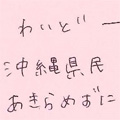 わいどー
沖縄県民
あきらめずに